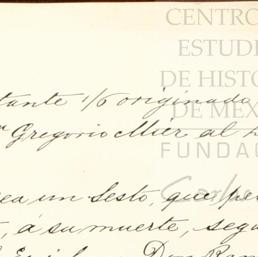 CENTRO
ESTUDI
DE HISTO
DE MÉX
FUNDA
Carlos
tante 1/6 originado
Gregorio Mier al
ea un sesto, que pe
, á su muerte, segu
Don Ram